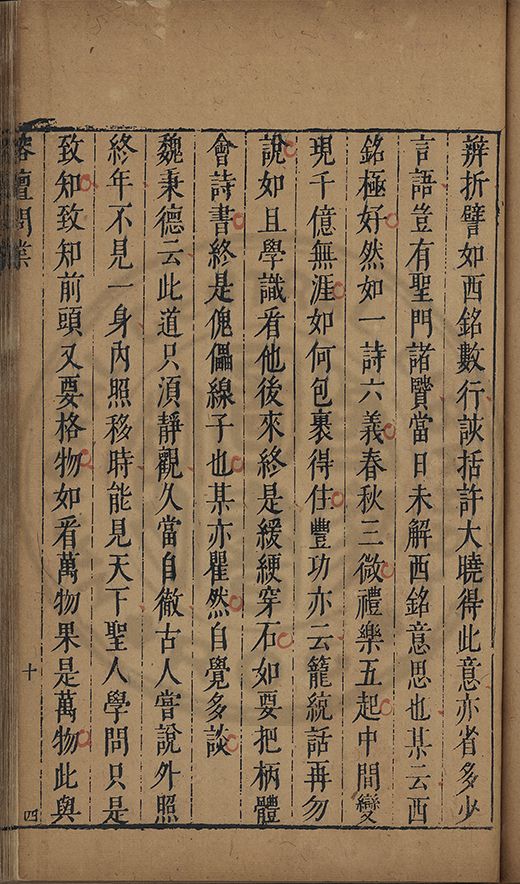 辨折譬如西銘數行該括許大曉得此意亦省多少
言語豈有聖門諸贒當日未解西銘意思也某云西
銘極好然如一詩六義春秋三微禮樂五起中間變
現千億無涯如何包裹得住豐功亦云籠統話再勿
說如且學識看他後來終是緩綆穿石如要把柄體
會詩書終是傀儡線子也某亦瞿然自覺多談
魏秉德云此道只湏靜觀久當自徹古人嘗說外照
終年不見一身內照移時能見天下聖人學問只是
致知致知前頭又要格物如看萬物果是萬物此與
榕壇問業
十
四